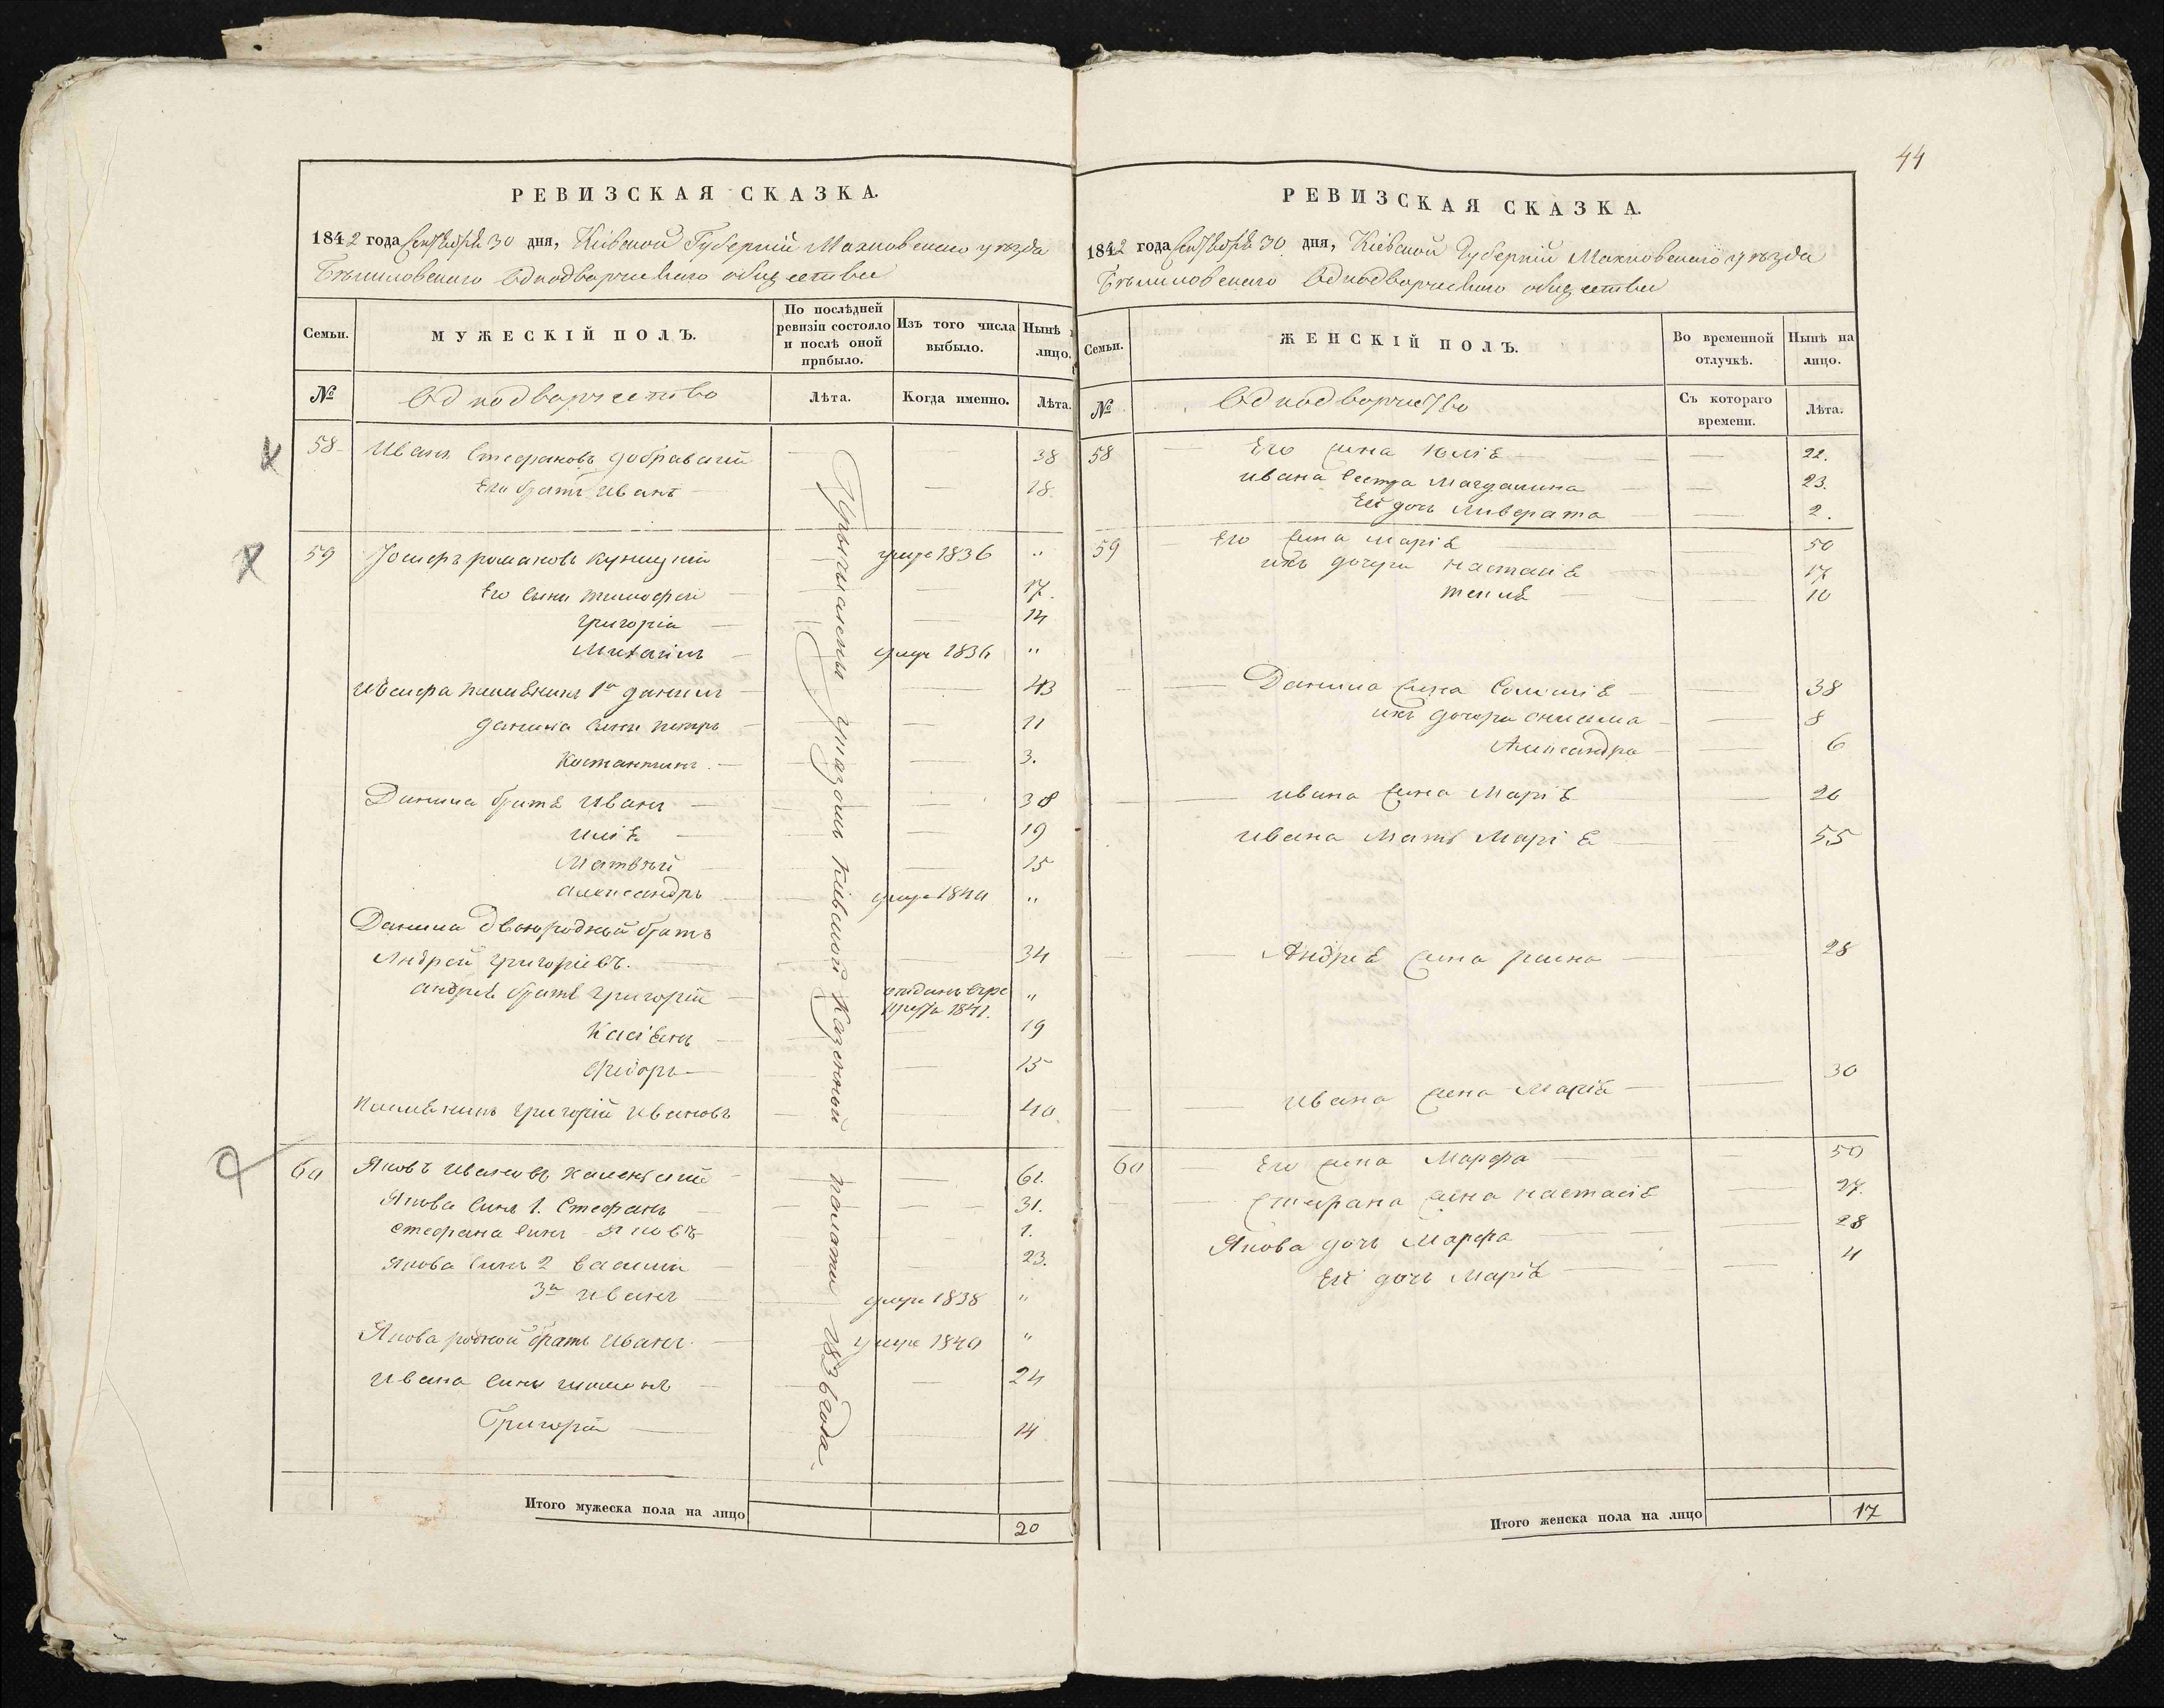 44
РЕВИЗСКАЯ СКАЗКА.
1842 года Сентября 30 дня, Кіевской Губерніи Махновскаго уѣзда
Бѣлиловскаго Однодворческаго общества
Семьи.
МУЖЕСКІЙ ПОЛЪ.
По послѣдней ревизіи состояло и послѣ оной прибыло.
Изъ того числа выбыло.
Нынѣ лицо.
№
Однодворчество
Лѣта.
Когда именно.
Лѣта.
Причислены указомъ Кіевской Казенной палаты 1836 года
58 Иванъ Стефановъ — — 38
Его братъ Иванъ — — 18
59 Іосифъ романовъ Куницкій — умре 1836 "
Его сыны тимофей — — 17.
григорій — — 14
Михаилъ — умре 1836 "
Іосифа племѣнникъ 1й данилъ — — 43
данила сыны петръ — — 11
Костантинъ — — 3.
Данила братя Иванъ — — 38
илія — — 19
Матвѣй — — 15
александръ — умре 1840 "
Данила двоюродный братъ
Андрей григоріевъ. — — 34
андрея братя григорій — отданъ въ ре
круты 1841. "
Касіянъ — — 19
Фіодоръ — — 15
племѣникъ григорій ивановъ — — 40
60 Яковъ ивановъ — — 61.
Якова синъ 1. Стефанъ — — 31.
стефана синъ Яковъ — — 1.
якова синъ 2 василій — — 23.
3й иванъ — умре 1838 "
Якова родной братъ Иванъ — умре 1840 "
Ивана сыны — — 24
Григорій — — 14
Итого мужеска пола на лицо 20
РЕВИЗСКАЯ СКАЗКА.
1842 года Сентября 30 дня, Кіевской Губерніи Махновскаго уѣзда
Бѣлиловскаго Однодворческаго общества
Семьи.
ЖЕНСКІЙ ПОЛЪ.
Во временной отлучкѣ.
Нынѣ на лицо.
№
Однодворчество
Съ котораго времени.
Лѣта.
58 Его жена юлія — 22.
ивана сестра Магдалина — 23.
Ей дочь Либерата — 2.
59 Его жена марія — 50
ихъ дочери настасія — 17
текля — 10
Данила жена Соломія — 38
ихъ дочери — 8
Александра — 6
ивана жена Марія — 26
ивана мать Марія — 55
Андрея жена — 28
ивана жена Марія — 30
60 Его жена Марфа — 50
стефана жена настасія — 27.
Якова дочь Марфа — 28
Ей дочь Марія — 4
Итого женска пола на лицо 17